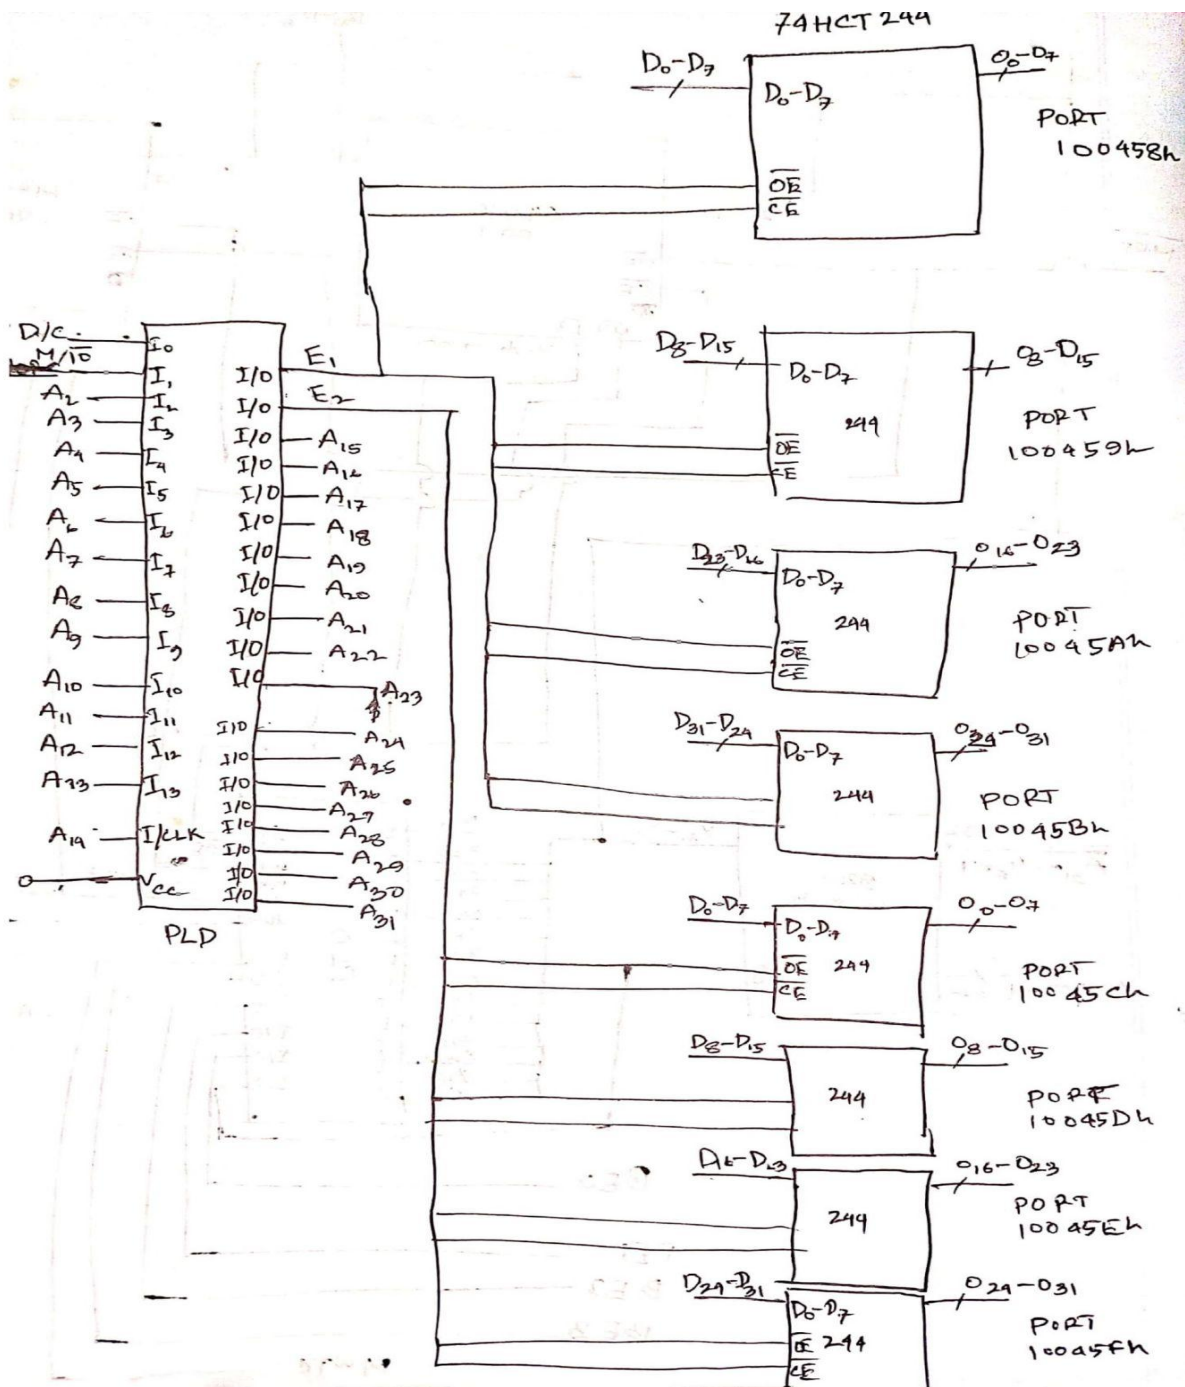 74HCT 244
D0-D7
D0-D7
O0-D7
PORT
100458h
OE
CE
D/C
M/IO
A2
A3
A4
A5
A6
A7
A8
A9
A10
A11
A12
A13
A14
I0
I1
I2
I3
I4
I5
I6
I7
I8
I9
I10
I11
I12
I13
I/CLK
Vcc
PLD
I/O E1
I/O E2
I/O A15
I/O A16
I/O A17
I/O A18
I/O A19
I/O A20
I/O A21
I/O A22
I/O A23
I/O A24
I/O A25
I/O A26
I/O A27
I/O A28
I/O A29
I/O A30
I/O A31
D8-D15
D0-D7
O8-D15
244
PORT
100459h
OE
CE
D23-D16
D0-D7
O16-O23
244
PORT
10045Ah
OE
CE
D31-D24
D0-D7
O24-O31
244
PORT
10045Bh
D0-D7
D0-D7
O0-O7
OE 244
CE
PORT
10045Ch
D8-D15
O8-O15
244
PORT
10045Dh
D16-D23
O16-O23
244
PORT
10045Eh
D24-D31
D0-D7
O24-O31
OE 244
CE
PORT
10045Fh